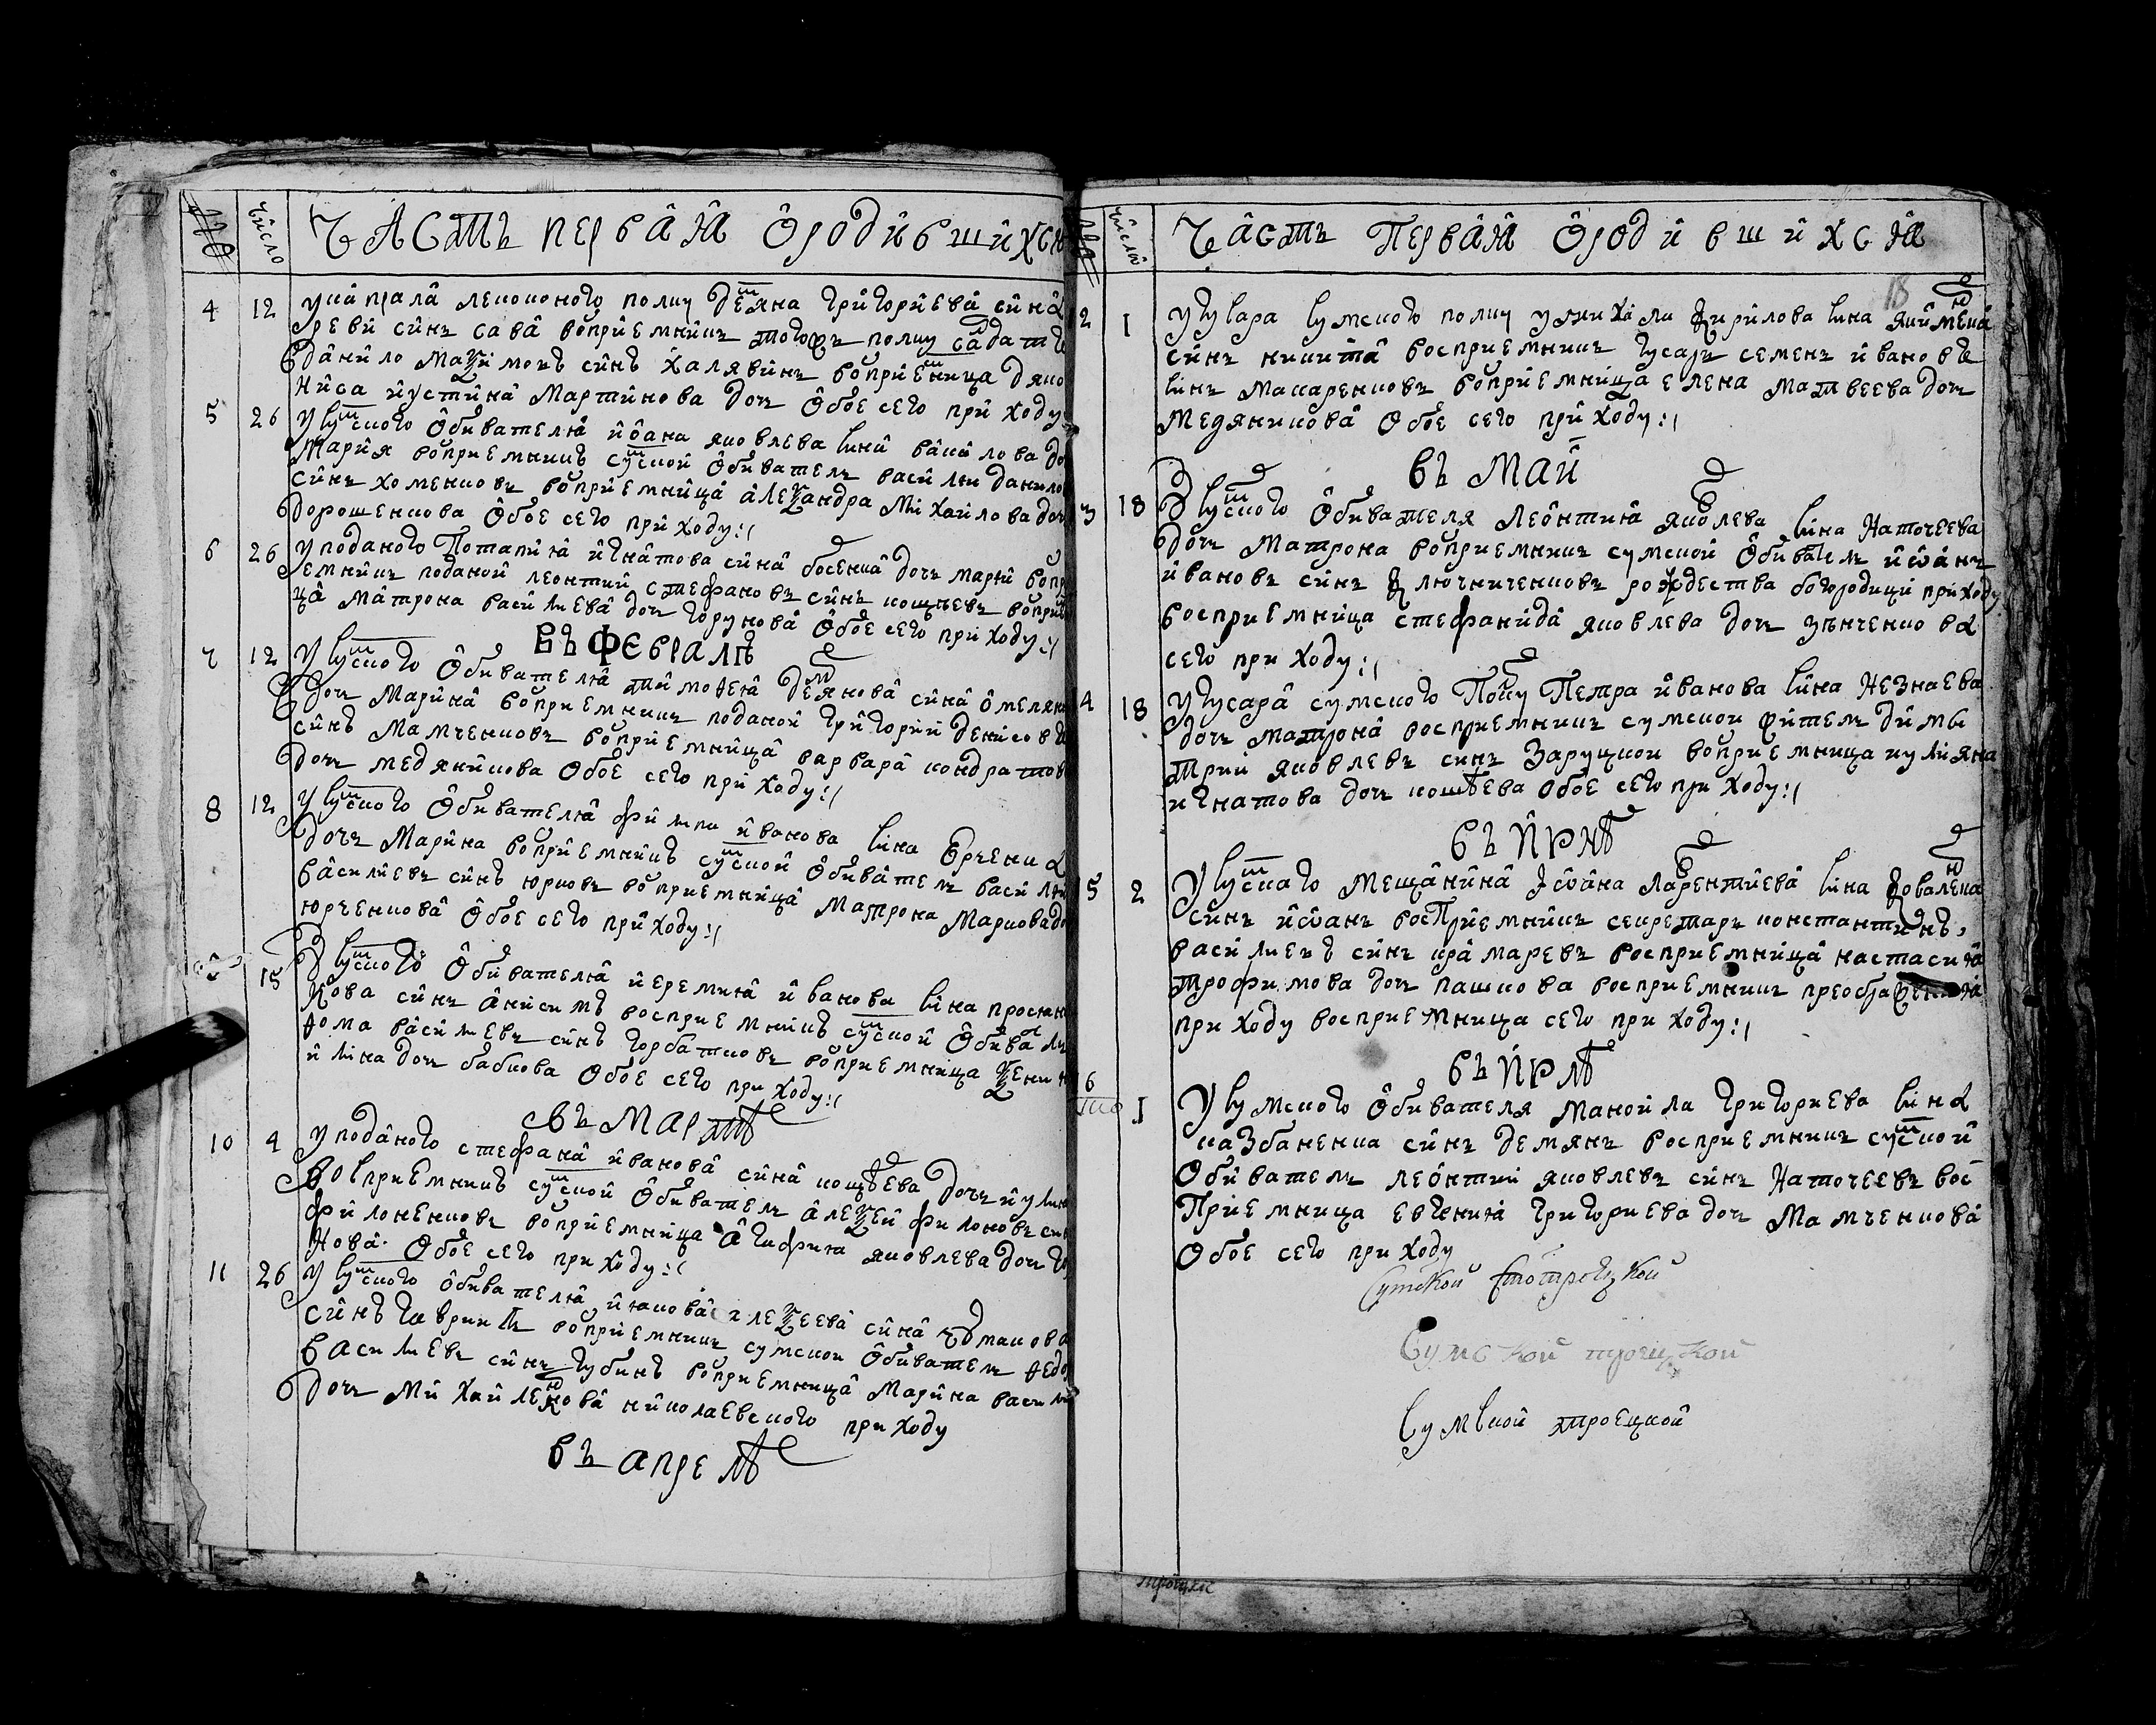 № число Часть первая ѻродившихся
4 12 У капрала леиконого полку демяна григориева сина
реви синъ сава воприемникъ тогожъ полку салдатъ
данило максимовъ синъ халявинъ воприемница дяко
ниса иустина мартинова дочъ обое сего приходу
5 26 У сумского обивателя иоана яковлева сина
мария воприемникъ сумской обиватель василии данило
синъ хоменковъ воприемница александра михаилова дочъ
дорошенкова обое сего приходу:/
6 26 У поданого потапия игнатова сина босенка дочъ марии вопр
емникъ поданой леонтий стефановъ синъ кощеевъ воприем
ца матрона василиева дочъ горунова обое сего приходу:/
Въ февралѣ
7 12 У сумского обивателя тимофея демянова сина омеляне
дочъ марина воприемникъ поданой григорий денисовъ
синъ мамченковъ воприемница варвара кондратов
дочъ медяникова обое сего приходу:/
8 12 У сумского обивателя филипа иванова сина юрченка
дочъ марина воприемникъ сумской обиватель василий
василиевъ синъ юрковъ воприемница матрона маркова до
юрченкова обое сего приходу:/
15 У сумского обивателя иеремия иванова сина проскур
кова синъ анисимъ восприемникъ сумской обиватель
фома василиевъ синъ горбатковъ воприемница ксения
илина дочъ бабкова обое сего приходу:/
Въ мартѣ
10 4 У поданого стефана иванова сина кощеева дочъ иулия
восприемникъ сумской обиватель алексей филоновъ син
филоненковъ воприемница агафия яковлева дочъ го
нова обое сего приходу:/
11 26 У сумского обивателя иякова алексеева сина
синъ гаврииль воприемникъ сумской обиватель федо
василиевъ синъ губинъ воприемница марина васили
дочъ михаиленкова николаевского приходу
въ апрелѣ
число Часть первая ѻродившихся
18
2 1 У гусара сумского полку михаила кирилова сина якименка
синъ никита восприемникъ гусаръ семенъ ивановъ
синъ макаренковъ воприемница елена матвеева дочъ
медяникова обое сего приходу:/
въ май
3 18 У сумского обивателя леонтия яковлева сина наточеева
дочъ матрона воприемникъ сумской обиватель иоанъ
ивановъ синъ ключниченковъ рождества богородици приходу
восприемница стефанида яковлева дочъ зѣнченкова
сего приходу:/
4 18 У гусара сумского полку петра иванова сина незнаева
дочъ матрона восприемникъ сумской житель дими
трий яковлевъ синъ заруцкой воприемница иулияна
игнатова дочъ кощеева обое сего приходу:/
въ июнѣ
5 2 У сумскаго мещанина иоана лаврентиева сина коваленка
синъ иоанъ восприемникъ секретарь константинъ,
василиевъ синъ крамаревъ восприемница настасия
трофимова дочъ пашкова восприемникъ преображения
приходу восприемница сего приходу:/
въ июлѣ
6 1 У сумского обивателя мануила григориева сина
казбаненка синъ демянъ восприемникъ сумской
обиватель леонтий яковлевъ синъ наточеевъ вос
приемница евгения григориева дочъ мамченкова
обое сего приходу
Сумской
Сумской троецкой
Сумской троецкой